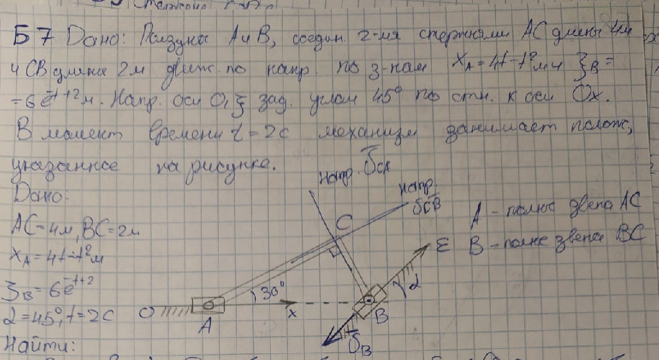 Б7 Дано: Ползуны А и В, соедин. 2-мя стержнями АС длины 4м
и СВ длины 2м движ. по напр. по з-нам x_A=4t-t²м и ξ_B=
=6e^{-t+2}м. Напр. оси O₁ξ зад. углом 45° по отн. к оси Ox.
В момент времени t=2с механизм занимает полож,
указанное на рисунке.
Дано:
напр.
напр.
AC=4м, BC=2м
x_A=4t-t²м
ξ_B=6e^{-t+2}
α=45°, t=2с
Найти:
C
A - полюс звена AC
B - полюс звена BC
O
A
30°
x
B
α